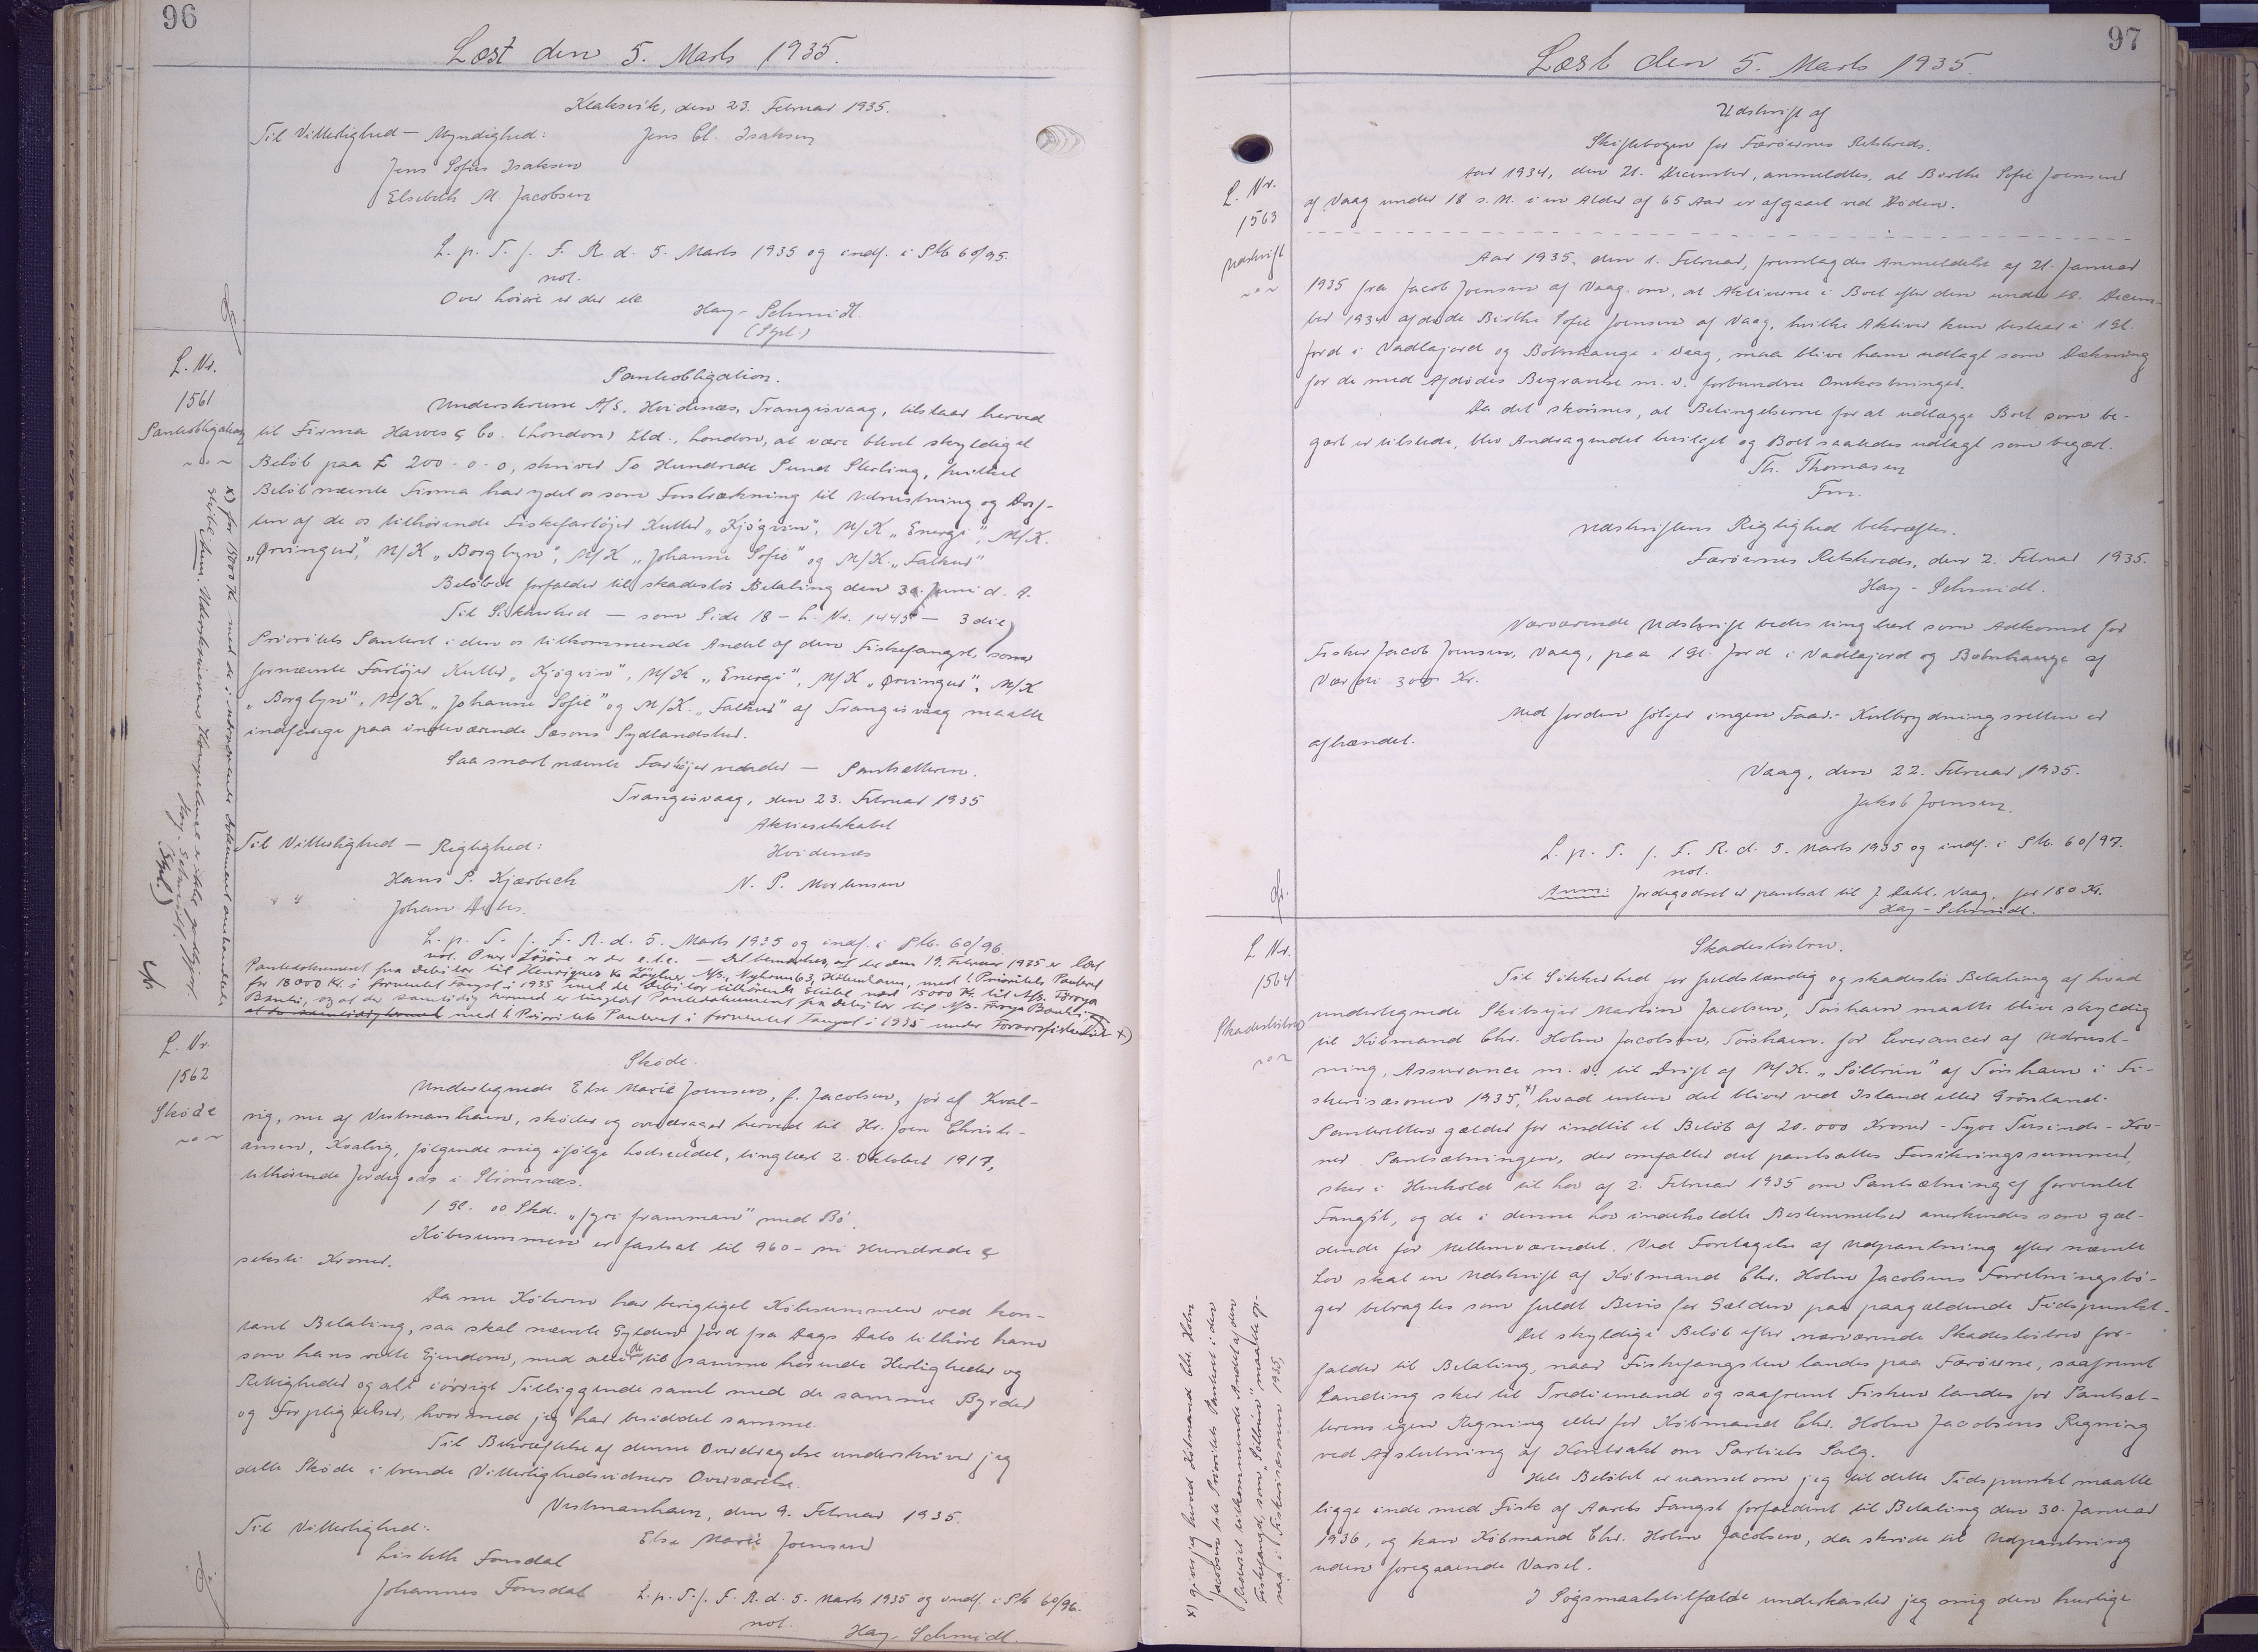 96
Læst den 5. Marts 1935.
Klaksvik, den 23. Februar 1935.
Til Vitterlighed — Myndighed: Jens Cl. Isaksen
Jens Sofus Isaksen
Elsebeth M. Jacobsen
L. p. T. f. F. R. d. 5. Marts 1935 og indf. i Ptb. 60/95.
not.
Over løsøre er der ele
Hay-Schmidt.
(Stpl.)
L. Nr.
1561
Pantobligation
~o~
Pantobligation.
Underskrevne A/S. Hvidenæs, Trangisvaag, tilstaar herved
til Firma Hawes & Co. (London) Ltd., London, at være blevet skyldig et
Beløb paa £ 200-0-0, skriver To Hundrede Pund Sterling, hvilket
Beløb nævnte Firma har ydet os som Forstrækning til Udrustning og Drif-
ten af de os tilhørende Fiskefartøjer Kutter „Kjøgvin", M/K „Energi", M/K.
„Ørvingur", M/K „Borglyn", M/K „Johanne Sofie" og M/K. „Falkur"
Beløbet forfalder til skadesløs Betaling den 30. Juni d. A.
Til Sikkerhed — som Side 18 - L. Nr. 1445 — 3 die
Prioritets Panteret i den os tilkommende Andel af den Fiskefangst, som
fornævnte Fartøjer Kutter „Kjøgvin", M/K „Energi", M/K „Ørvingur", M/K
„Borglyn", M/K „Johanne Sofie" og M/K. „Falkur" af Trangisvaag maatte
indfange paa indeværende Sæsons Sydlandstur.
Saa snart nævnte Fartøjer — Pantsætteren.
Trangisvaag, den 23. Februar 1935
Aktieselskabet
Til Vitterlighed — Rigtighed: Hvidenæs
Hans P. Kjærbech N. P. Mortensen
Johan
L. p. T. f. F. R. d. 5. Marts 1935 og indf. i Ptb. 60/96
not. Over Løsøre er der e.l.e. — Det bemærkes, at der den 19. Februar 1935 er læst
Pantedokument fra Debitor til Henriques & Løyhner, A/S., Nyhavn 63, København, med 1. Prioritets Panteret
for 18000 Kr. i forventet Fangst i 1935 med de Debitor tilhørende Skibe, næst 15000 Kr. til A/S. Føroya
Banki, og at der samtidig hermed er tinglæst Pantedokument fra Debitor til A/S. Føroya Banki
at der samtidig hermed med 1. Prioritets Panteret i forventet Fangst i 1935 under Foraarsfiskeriet x)
x) for 15000 Kr. med de i nærværende Dokument omhandlede
Skibe. Anm. Underskriverens Kompetence er ikke godtgjort.
Hay-Schmidt.
(Stpl.)
L. Nr.
1562
Skøde
~o~
Skøde.
Undertegnede Else Marie Joensen, f. Jacobsen, før af Kval-
vig, nu af Vestmanhavn, skøder og overdrager herved til Hr. Joen Christi-
ansen, Kvalvig, følgende mig ifølge Lodseddel, tinglæst 2. Oktober 1917,
tilhørende Jordegods i Strømnæs.
1 Gl. 00 Skd. „fyri framman" med Bø.
Købesummen er fastsat til 960 - ni Hundrede &
seksti Kroner.
Da nu Køberen har berigtiget Købesummen ved kon-
tant Betaling, saa skal nævnte Gylden Jord fra Dags Dato tilhøre ham
som hans rette Ejendom, med alle de til samme hørende Herligheder og
Rettigheder og alt iøvrigt Tilliggende samt med de samme Byrder
og Forpligtelser, hvormed jeg har besiddet samme.
Til Bekræftelse af denne Overdragelse underskriver jeg
dette Skøde i tvende Vitterlighedsvidners Overværelse.
Vestmanhavn, den 9. Februar 1935.
Til Vitterlighed: Else Marie Joensen
Lisbeth Fonsdal
Johannes Fonsdal
L. p. T. f. F. R. d. 5. Marts 1935 og indf. i Ptb 60/96.
not. Hay-Schmidt.
97
Læst den 5. Marts 1935.
L. Nr.
1563
Udskrift
~o~
Udskrift af
Skiftebogen for Færøernes Retskreds.
Aar 1934, den 21. December, anmeldtes, at Birthe Sofie Joensen
af Vaag under 18 s. M. i en Alder af 65 Aar er afgaaet ved Døden.
Aar 1935, den 1. Februar, foretages Anmeldelse af 21. Januar
1935 fra Jacob Joensen af Vaag om, at Aktiverne i Boet efter den under 18. Decem-
ber 1934 afdøde Birthe Sofie Joensen af Vaag, hvilke Aktiver kun bestaar i 1 Gl.
Jord i Vadlajord og Bøbrhauge i Vaag, maa blive ham udlagt som Dækning
for de med Afdødes Begravelse m. v. forbundne Omkostninger.
Da det skønnes, at Betingelserne for at udlægge Boet som be-
gært er tilstede, blev Andragendet bevilget og Boet saaledes udlagt som begært.
Th. Thomasen
Fm.
Udskriftens Rigtighed bekræftes.
Færøernes Retskreds, den 2. Februar 1935.
Hay-Schmidt.
Nærværende Udskrift bedes tinglæst som Adkomst for
Fisker Jacob Joensen, Vaag, paa 1 Gl. Jord i Vadlajord og Bøbrhauge af
Værdi 300 Kr.
Med Jorden følger ingen Faar.- Kulbrydningsretten er
afhændet.
Vaag, den 22. Februar 1935.
Jakob Joensen.
L. p. T. f. F. R. d. 5. Marts 1935 og indf. i Ptb. 60/97.
not.
Anm: Jordegodset er pantsat til J. Dahl, Vaag, for 180 Kr.
Hay-Schmidt.
L. Nr.
1564
Skadesløsbrev
~o~
Skadesløsbrev.
Til Sikkerhed for fuldstændig og skadesløs Betaling af hvad
undertegnede Skibsejer Martin Jacobsen, Tórshavn maatte blive skyldig
til Købmand Chr. Holm Jacobsen, Tórshavn, for Leverancer af Udrust-
ning, Assurance m. v. til Drift af M/K. „Sólbrún" af Tórshavn i Fi-
skerisæsonen 1935, x) hvad enten det bliver ved Island eller Grønland.
Panteretten gælder for indtil et Beløb af 20.000 Kroner - Tyve Tusinde - Kro-
ner. Pantsætningen, der omfatter det pantsattes Forsikringssummer,
sker i Henhold til Lov af 2. Februar 1935 om Pantsætning af forventet
Fangst, og de i denne Lov indeholdte Bestemmelser anerkendes som gæl-
dende for Mellemværendet. Ved Foretagelse af Udpantning efter nævnte
Lov skal en Udskrift af Købmand Chr. Holm Jacobsens Forretningsbø-
ger betragtes som fuldt Bevis for Gælden paa paagældende Tidspunkt.
Det skyldige Beløb efter nærværende Skadesløsbrev for-
falder til Betaling, naar Fiskefangsten landes paa Færøerne, saafremt
Landing sker til Trediemand og saafremt Fisken landes for Pantsæt-
terens egen Regning eller for Købmand Chr. Holm Jacobsens Regning
ved Afslutning af Kontrakt om Partiets Salg.
Hele Beløbet er uanset om jeg til dette Tidspunkt maatte
ligge inde med Fisk af Aarets Fangst forfaldent til Betaling den 30. Januar
1936, og kan Købmand Chr. Holm Jacobsen, da skride til Udpantning
uden foregaaende Varsel.
I Søgsmaalstilfælde underkaster jeg mig den hurtige
x) giver jeg herved Købmand Chr. Holm
Jacobsen 1ste Prioritets Panteret i den
Rederiet tilkommende Andel af den
Fiskefangst, som „Sólbrún" maatte op-
naa i Fiskerisæsonen 1935,